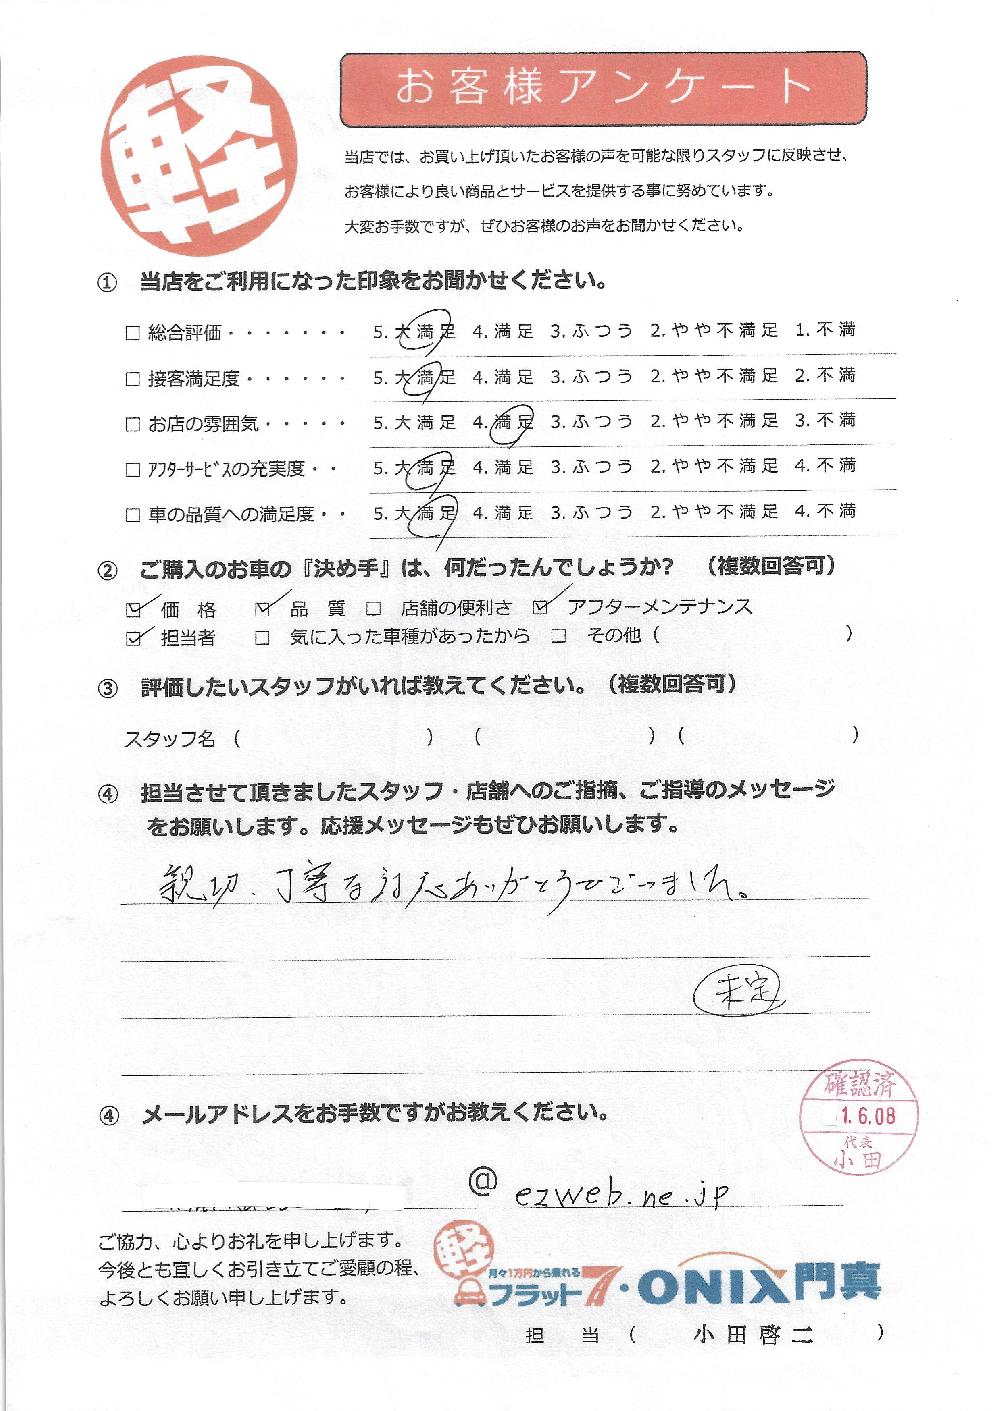 軽
お客様アンケート
当店では、お買い上げ頂いたお客様の声を可能な限りスタッフに反映させ、
お客様により良い商品とサービスを提供する事に努めています。
大変お手数ですが、ぜひお客様のお声をお聞かせください。
① 当店をご利用になった印象をお聞かせください。
□ 総合評価・・・・・・・ 5.大満足 4.満足 3.ふつう 2.やや不満足 1.不満
□ 接客満足度・・・・・・ 5.大満足 4.満足 3.ふつう 2.やや不満足 2.不満
□ お店の雰囲気・・・・・ 5.大満足 4.満足 3.ふつう 2.やや不満足 3.不満
□ ｱﾌﾀｰｻｰﾋﾞｽの充実度・・ 5.大満足 4.満足 3.ふつう 2.やや不満足 4.不満
□ 車の品質への満足度・・ 5.大満足 4.満足 3.ふつう 2.やや不満足 4.不満
② ご購入のお車の『決め手』は、何だったんでしょうか? （複数回答可）
☑ 価 格 ☑ 品 質 □ 店舗の便利さ ☑ アフターメンテナンス
☑ 担当者 □ 気に入った車種があったから □ その他（ ）
③ 評価したいスタッフがいれば教えてください。（複数回答可）
スタッフ名（ ） （ ）（ ）
④ 担当させて頂きましたスタッフ・店舗へのご指摘、ご指導のメッセージ
をお願いします。応援メッセージもぜひお願いします。
親切、丁寧な対応ありがとうございました。
未定
確認済
1.6.08
代表
小田
④ メールアドレスをお手数ですがお教えください。
@ ezweb.ne.jp
ご協力、心よりお礼を申し上げます。
今後とも宜しくお引き立てご愛顧の程、
よろしくお願い申し上げます。
軽
月々1万円から乗れる
フラット7・ONIX門真
担 当 （ 小田啓二 ）